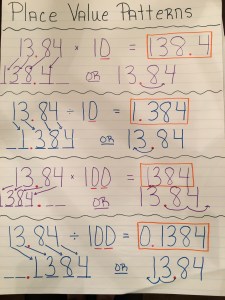 Place Value Patterns
13.84 × 10 = 138.4
138.4_ OR 13.84
13.84 ÷ 10 = 1.384
_1.384 OR 13.84
13.84 × 100 = 1384
1384._ _ OR 13.84
13.84 ÷ 100 = 0.1384
_ _.1384 OR 13.84